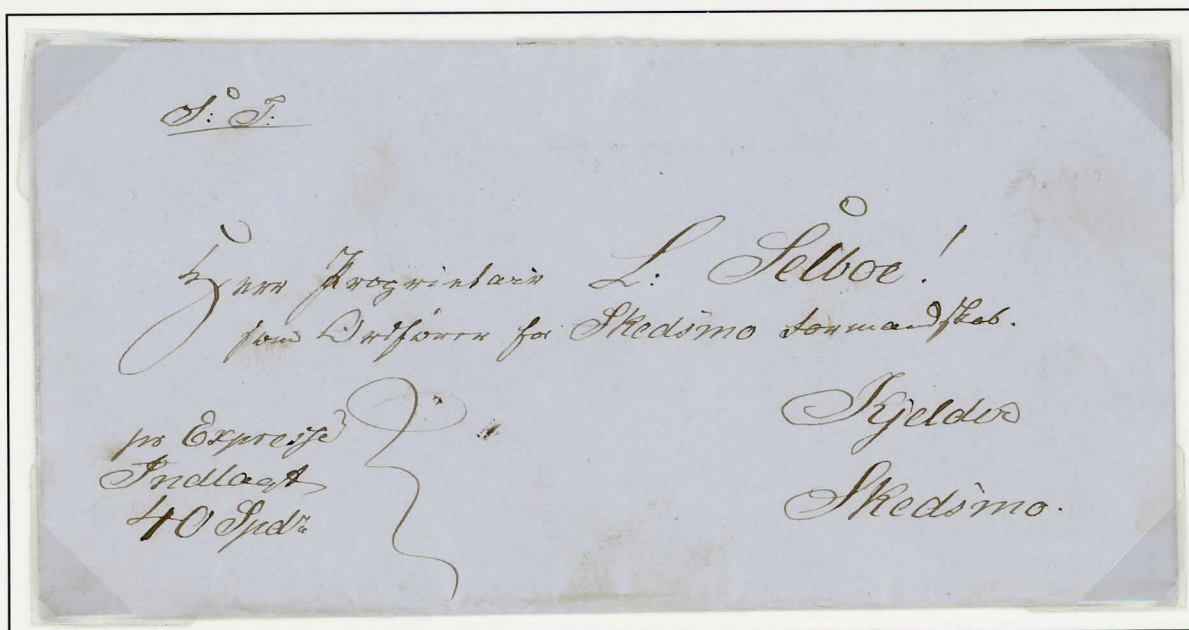 S: T:
Herr Proprietair L: Selboe!
som Ordfører for Skedsmo Formandskab.
Kjeldvs
Skedsmo.
pr Expresse
Indlagt
40 Spdr